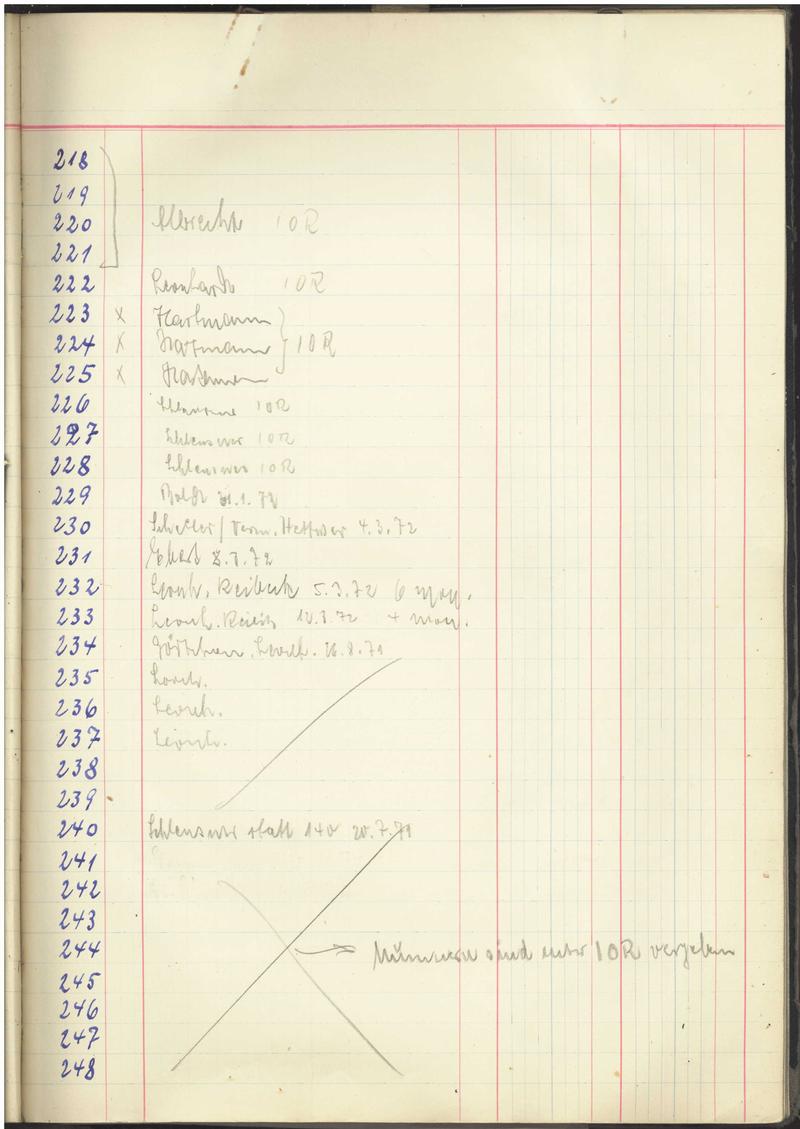 218
219
220 Albrecht 10R
221
222 Leonhardt 10R
223 x Hartmann
224 x Hartmann 10R
225 x Hartmann
226 10R
227 10R
228 10R
229 Boldt 1.72
230 / Verm. 4.3.72
231 Ebert 8.3.72
232 Leonh. 5.3.72 6 Mon.
233 Leonh. 12.3.72 4 Mon.
234 Leonh. 26.8.71
235 Leonh.
236 Leonh.
237 Leonh.
238
239
240 statt 140 20.7.71
241
242
243
244 Nummern sind unter 10R vergeben
245
246
247
248